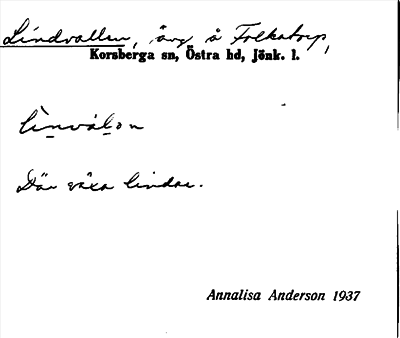 Lindvallen, äng å Folkatorp,
Korsberga sn, Östra hd, Jönk. l.
lìnvál̠ɔn
Där växa lindar.
Annalisa Anderson 1937